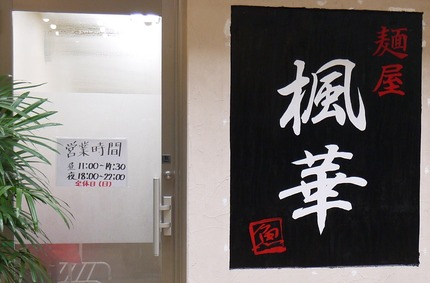 営業時間
昼 11:00～14:30
夜 18:00～22:00
定休日（日）
麺屋
楓華
魚